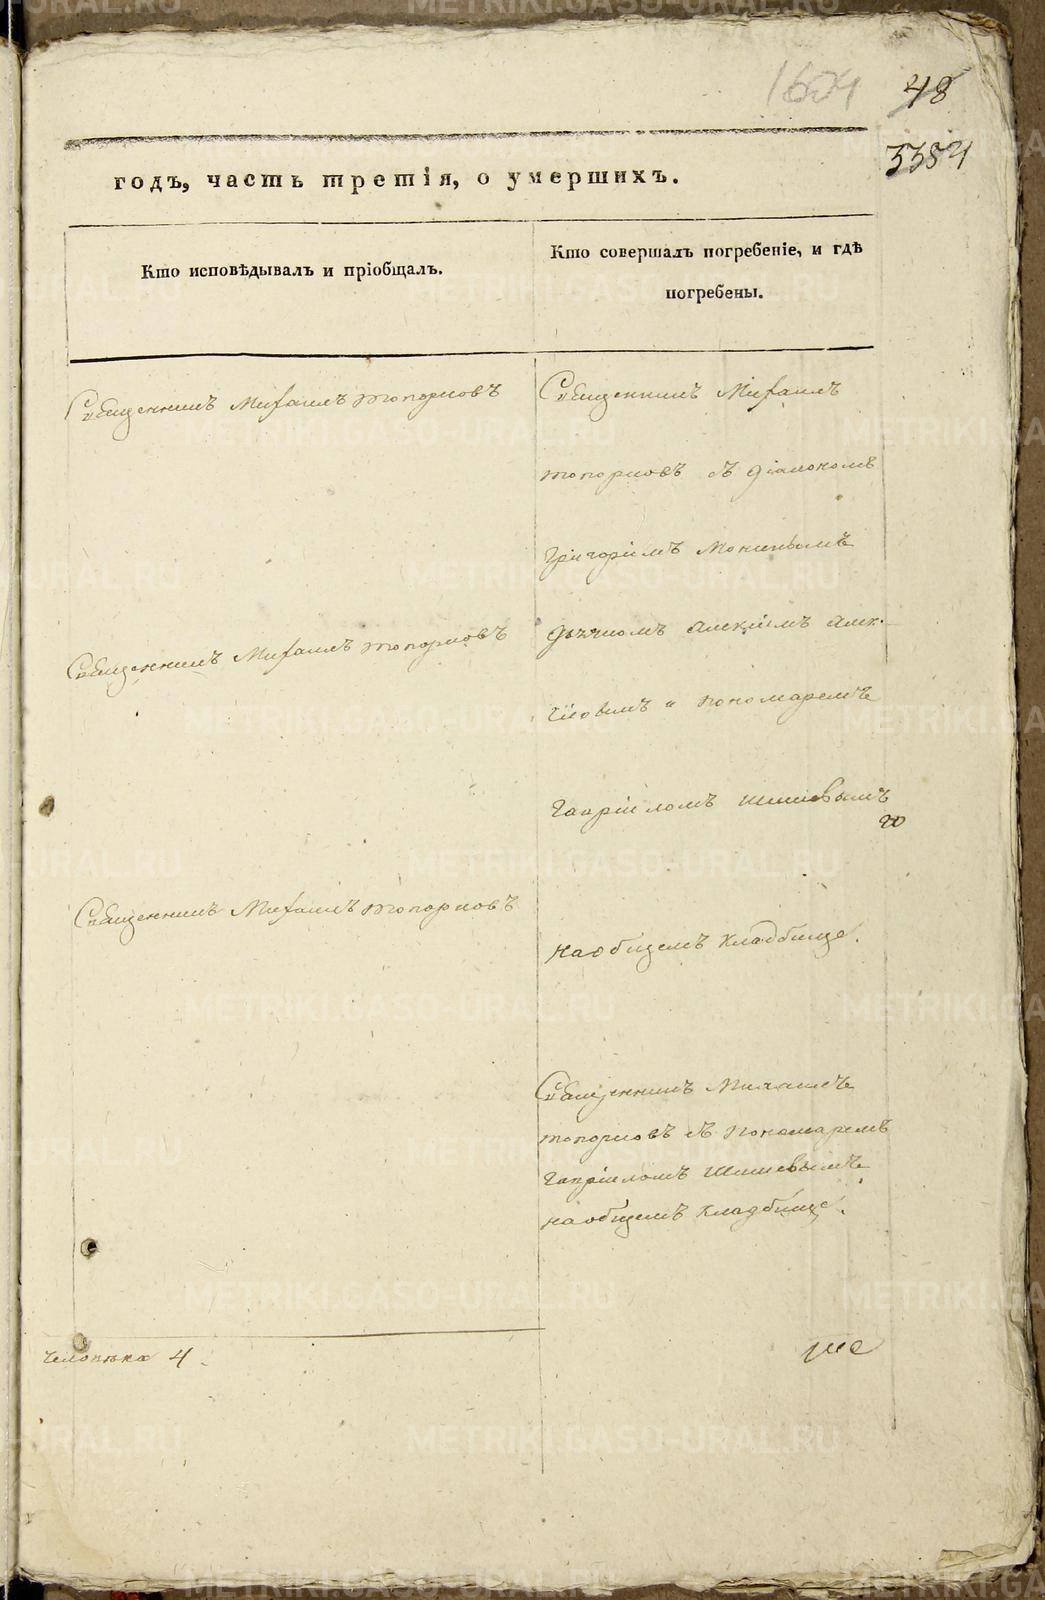 1604 48
3384
годъ, часть третія, о умершихъ.
Кто исповѣдывалъ и пріобщалъ.
Кто совершалъ погребеніе, и гдѣ
погребены.
Священникъ Михаилъ Топорковъ
Священникъ Михаилъ
Топорковъ съ діакономъ
Григоріемъ
дьячкомъ Алексіемъ Алек-
и пономаремъ
Гавріиломъ Шишевымъ
Священникъ Михаилъ Топорковъ
Священникъ Михаилъ Топорковъ
на общемъ кладбище.
Священникъ Михаилъ
Топорковъ съ пономаремъ
Гавріиломъ Шишевымъ
на общемъ кладбище.
человѣка 4
METRIKI.GASO-URAL.RU